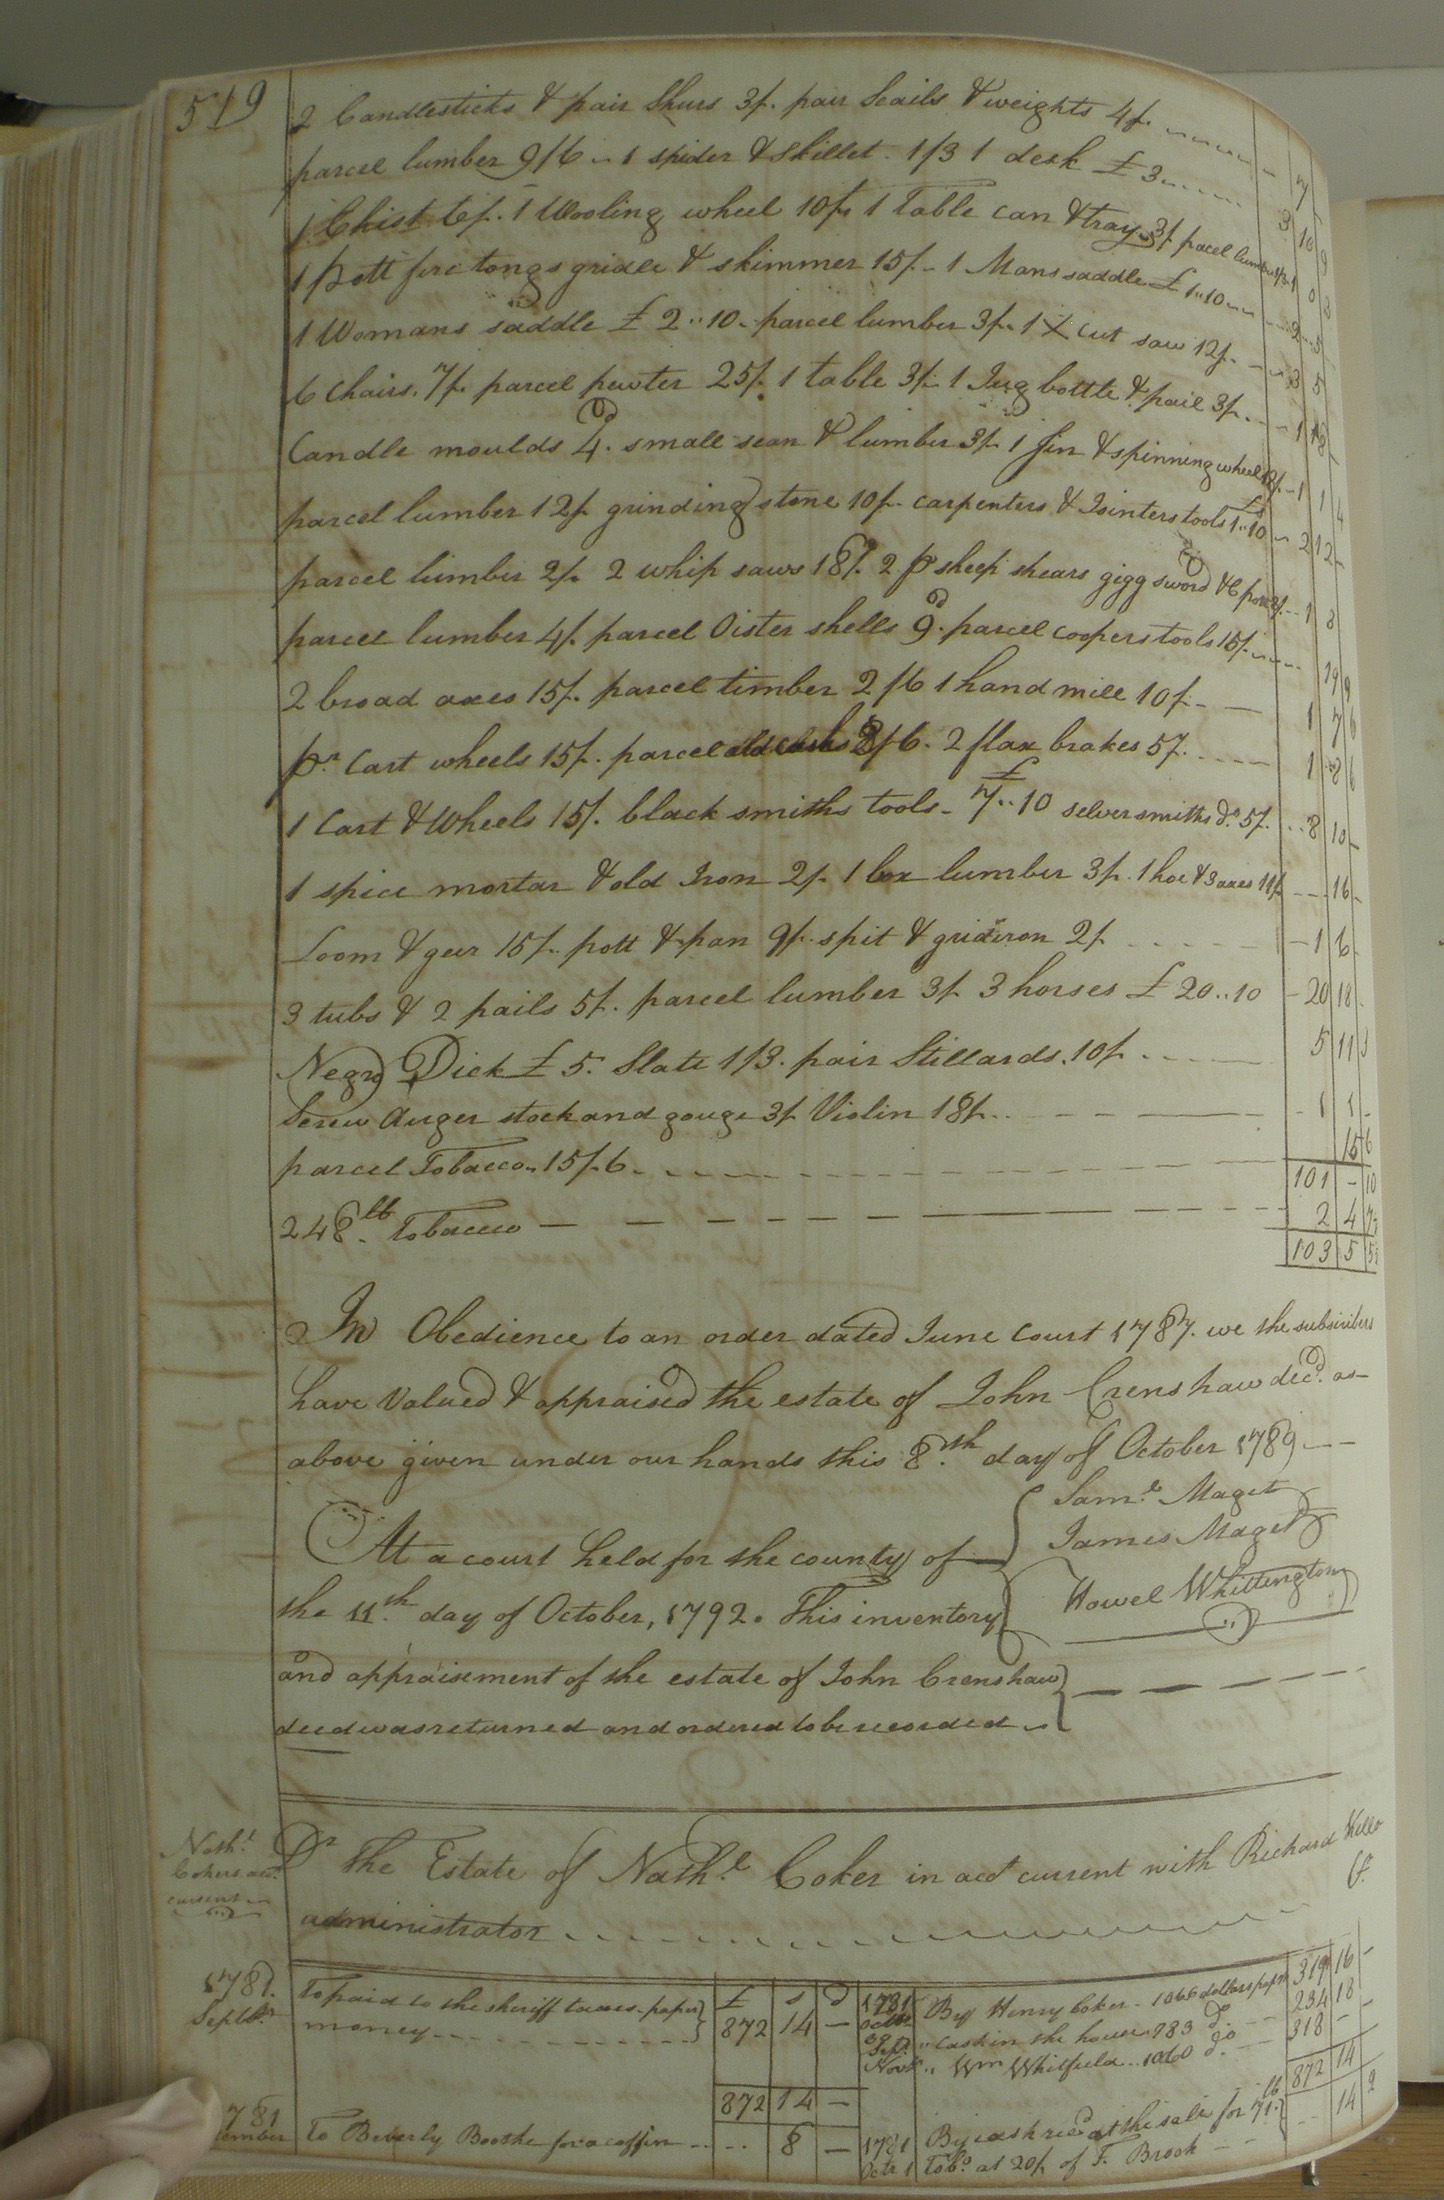 519
2 Candlesticks & pair Shurs 3/. pair Scails & weights 4/. 7
parcel lumber 9/6 1 spider & Skillet. 1/3 1 desk £ 3 3 10 9
1 Chist 6/. 1 Wooling wheel 10/. 1 Table can & tray 3/. 1 0
1 Pott fire tongs gridle & skimmer 15/. 1 Mans saddle £ 1..10 2 5
1 Womans saddle £ 2..10. parcel lumber 3/. 1 X cut saw 12/. 3 5
6 Chairs. 7/. parcel pewter 25/. 1 table 3/. 1 Jug bottle & pail 3/. 1
Candle moulds 4d. small sean & lumber 3/. 1 & spinning wheel 1 1 4
parcel lumber 12/. grinding stone 10/. carpenters & Jointers tools £1..10 2 12
parcel lumber 2/. 2 whip saws 18/. 2 pr sheep shears gigg sword 1 8
parcel lumber 4/. parcel Oister shells 9d. parcel coopers tools 15/. 19 9
2 broad axes 15/. parcel timber 2/6 1 hand mill 10/. 1 7 6
pr. Cart wheels 15/. parcel old casks 8/6. 2 flax brakes 5/. 1 8 6
1 Cart & Wheels 15/. black smiths tools - £ 7..10 selversmiths do. 5/. 8 10
1 spice mortar & old Iron 2/. 1 box lumber 3/. 1 hoe & 3 axes 11/. 16
Loom & geer 15/. pott & pan 9/. spit & gridiron 2/. 1 6
3 tubs & 2 pails 5/. parcel lumber 3/. 3 horses £ 20..10 20 18
Negro Dick £ 5. Slate 1/3. pair Stillards. 10/. 5 11 3
Screw Auger stock and gouge 3/. Violin 18/. 1 1
parcel Tobacco. 15/.6 15 6
101 - 10
248 lb. Tobacco 2 4 7
103 5 5
In Obedience to an order dated June Court 1787. we the subscribers
have Valued & appraised the estate of John Crenshaw decd. as
above given under our hands this 8th. day of October 1789
Saml. Maget
James Maget
Howel Whittington
At a court held for the county of
the 11th. day of October, 1792. This inventory
and appraisement of the estate of John Crenshaw
decd was returned and ordered to be recorded
Nathl.
Cokers acct.
current
Dr The Estate of Nathl. Coker in acct current with Richard Kello
administrator Cr.
1781. Septbr To paid to the sheriff taxes paper
money
£ s d
872 14 -
1781 Octbr By Henry Coker - 1066 dollars paper 319 16 -
Sept. " Cash in the house 783 do 234 18
Novr. " Wm Whitfield .. 1060 do 318 - -
872 14 -
872 14
1781 To Beverly Boothe for a coffin .. 8 -
1781 Octr 1 By cash recd at the sale for 71 lb
Tobo. at 20/. of F. Brook .. 14 2